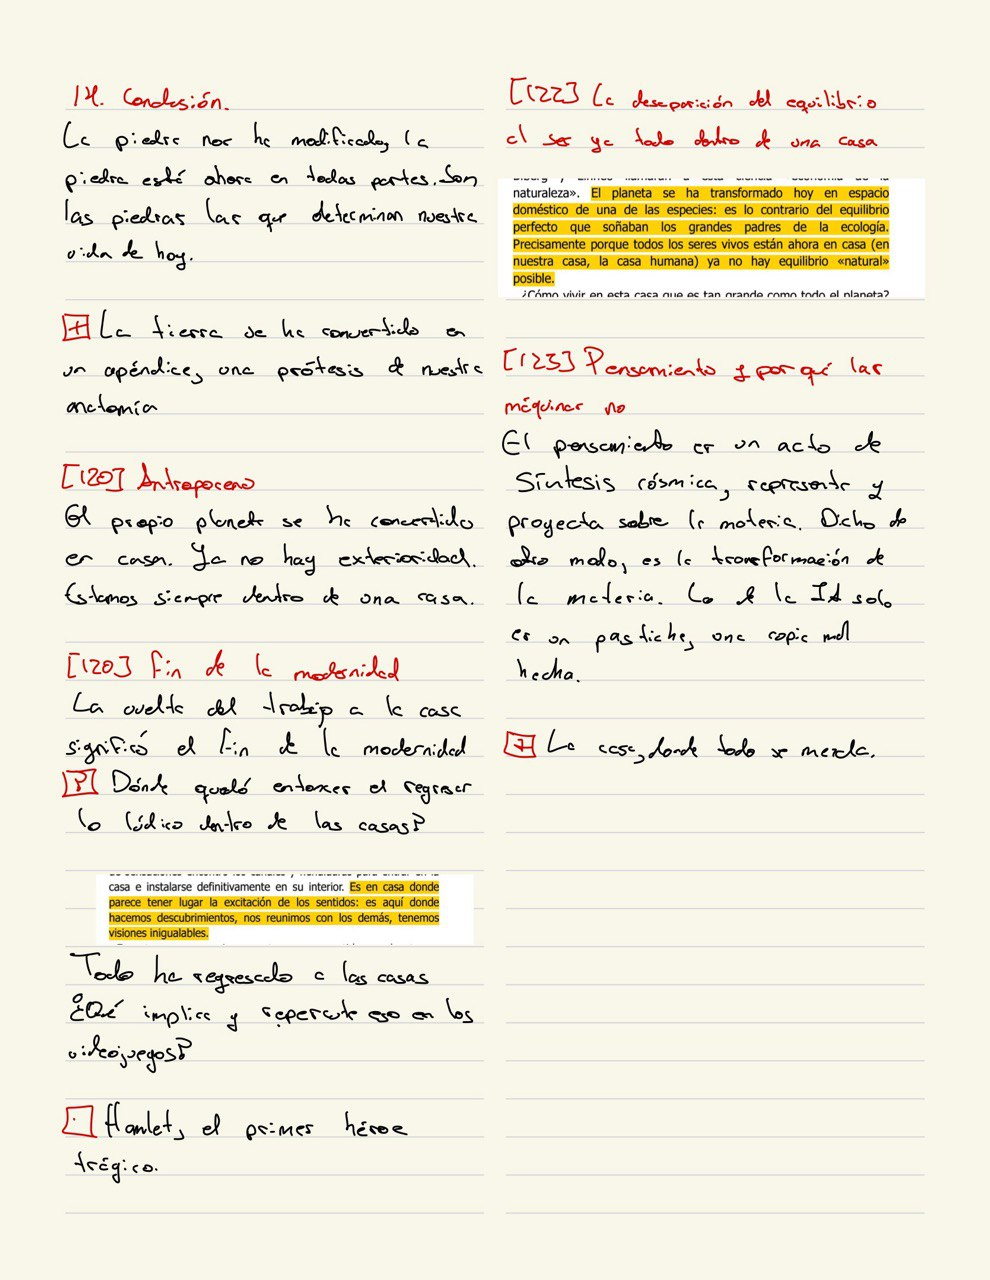 14. Conclusión.
La piedra nos ha modificado, la
piedra está ahora en todas partes. Son
las piedras las que determinan nuestra
vida de hoy.
+ La tierra se ha convertido en
un apéndice, una prótesis de nuestra
anatomía
[120] Antropoceno
El propio planeta se ha convertido
en casa. Ya no hay exterioridad.
Estamos siempre dentro de una casa.
[120] Fin de la modernidad
La vuelta del trabajo a la casa
significó el fin de la modernidad
? Dónde quedó entonces el regresar
lo lúdico dentro de las casas?
casa e instalarse definitivamente en su interior. Es en casa donde
parece tener lugar la excitación de los sentidos: es aquí donde
hacemos descubrimientos, nos reunimos con los demás, tenemos
visiones inigualables.
Todo ha regresado a las casas
¿Qué implica y repercute eso en los
videojuegos?
· Hamlet, el primer héroe
trágico.
[122] La desaparición del equilibrio
al ser ya todo dentro de una casa
naturaleza». El planeta se ha transformado hoy en espacio
doméstico de una de las especies: es lo contrario del equilibrio
perfecto que soñaban los grandes padres de la ecología.
Precisamente porque todos los seres vivos están ahora en casa (en
nuestra casa, la casa humana) ya no hay equilibrio «natural»
posible.
¿Cómo vivir en esta casa que es tan grande como todo el planeta?
[123] Pensamiento y por qué las
máquinas no
El pensamiento es un acto de
Síntesis cósmica, representa y
proyecta sobre la materia. Dicho de
otro modo, es la transformación de
la materia. Lo de la IA solo
es un pastiche, una copia mal
hecha.
+ La casa, donde todo se mezcla.